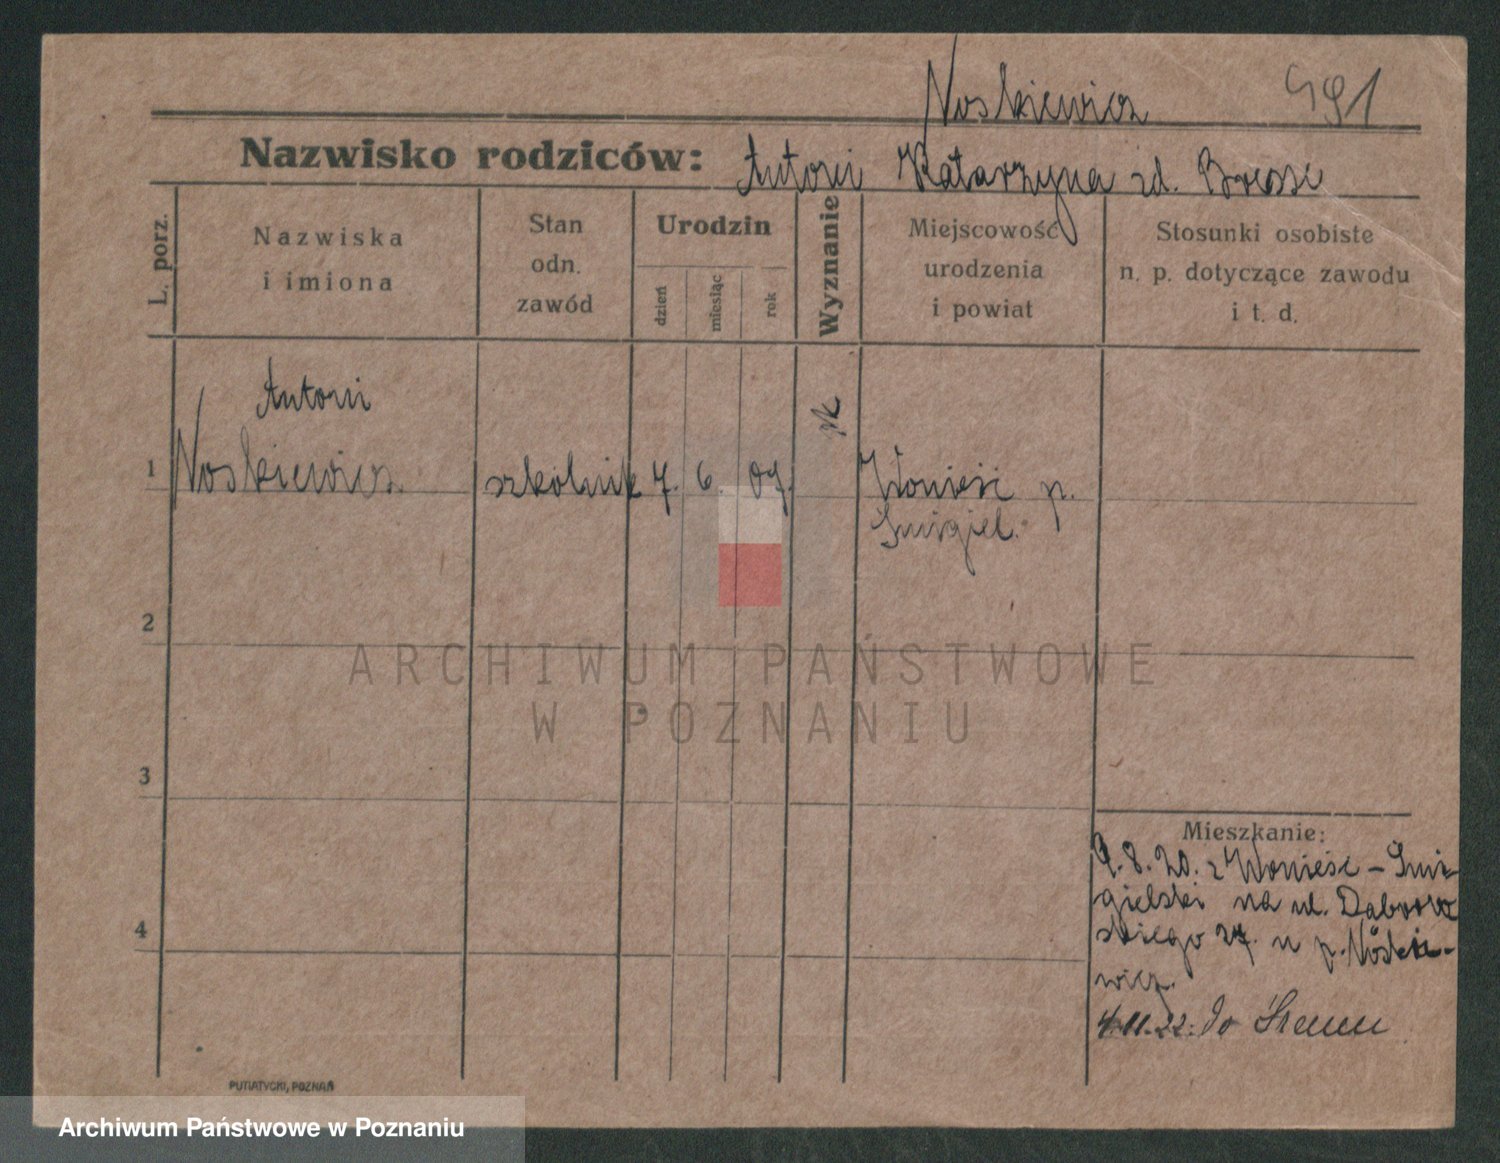 Noskiewicz 491
Nazwisko rodziców: Antoni Katarzyna zd.
L. porz.
Nazwiska
i imiona
Stan
odn.
zawód
Urodzin
dzień
miesiąc
rok
Wyznanie
Miejscowość
urodzenia
i powiat
Stosunki osobiste
n. p. dotyczące zawodu
i t. d.
Antoni
1 Noskiewicz szkolnik 7. 6. 07. rk Wonieść p.
Śmigiel.
2
3
4
Mieszkanie:
9.8.20. z Wonieść – Śmi-
gielski na ul. Dąbrow
skiego 27. u p. Noskie-
wicz.
4.11.22. do Śremu
PUTIATYCKI, POZNAŃ
ARCHIWUM PAŃSTWOWE
W POZNANIU
Archiwum Państwowe w Poznaniu